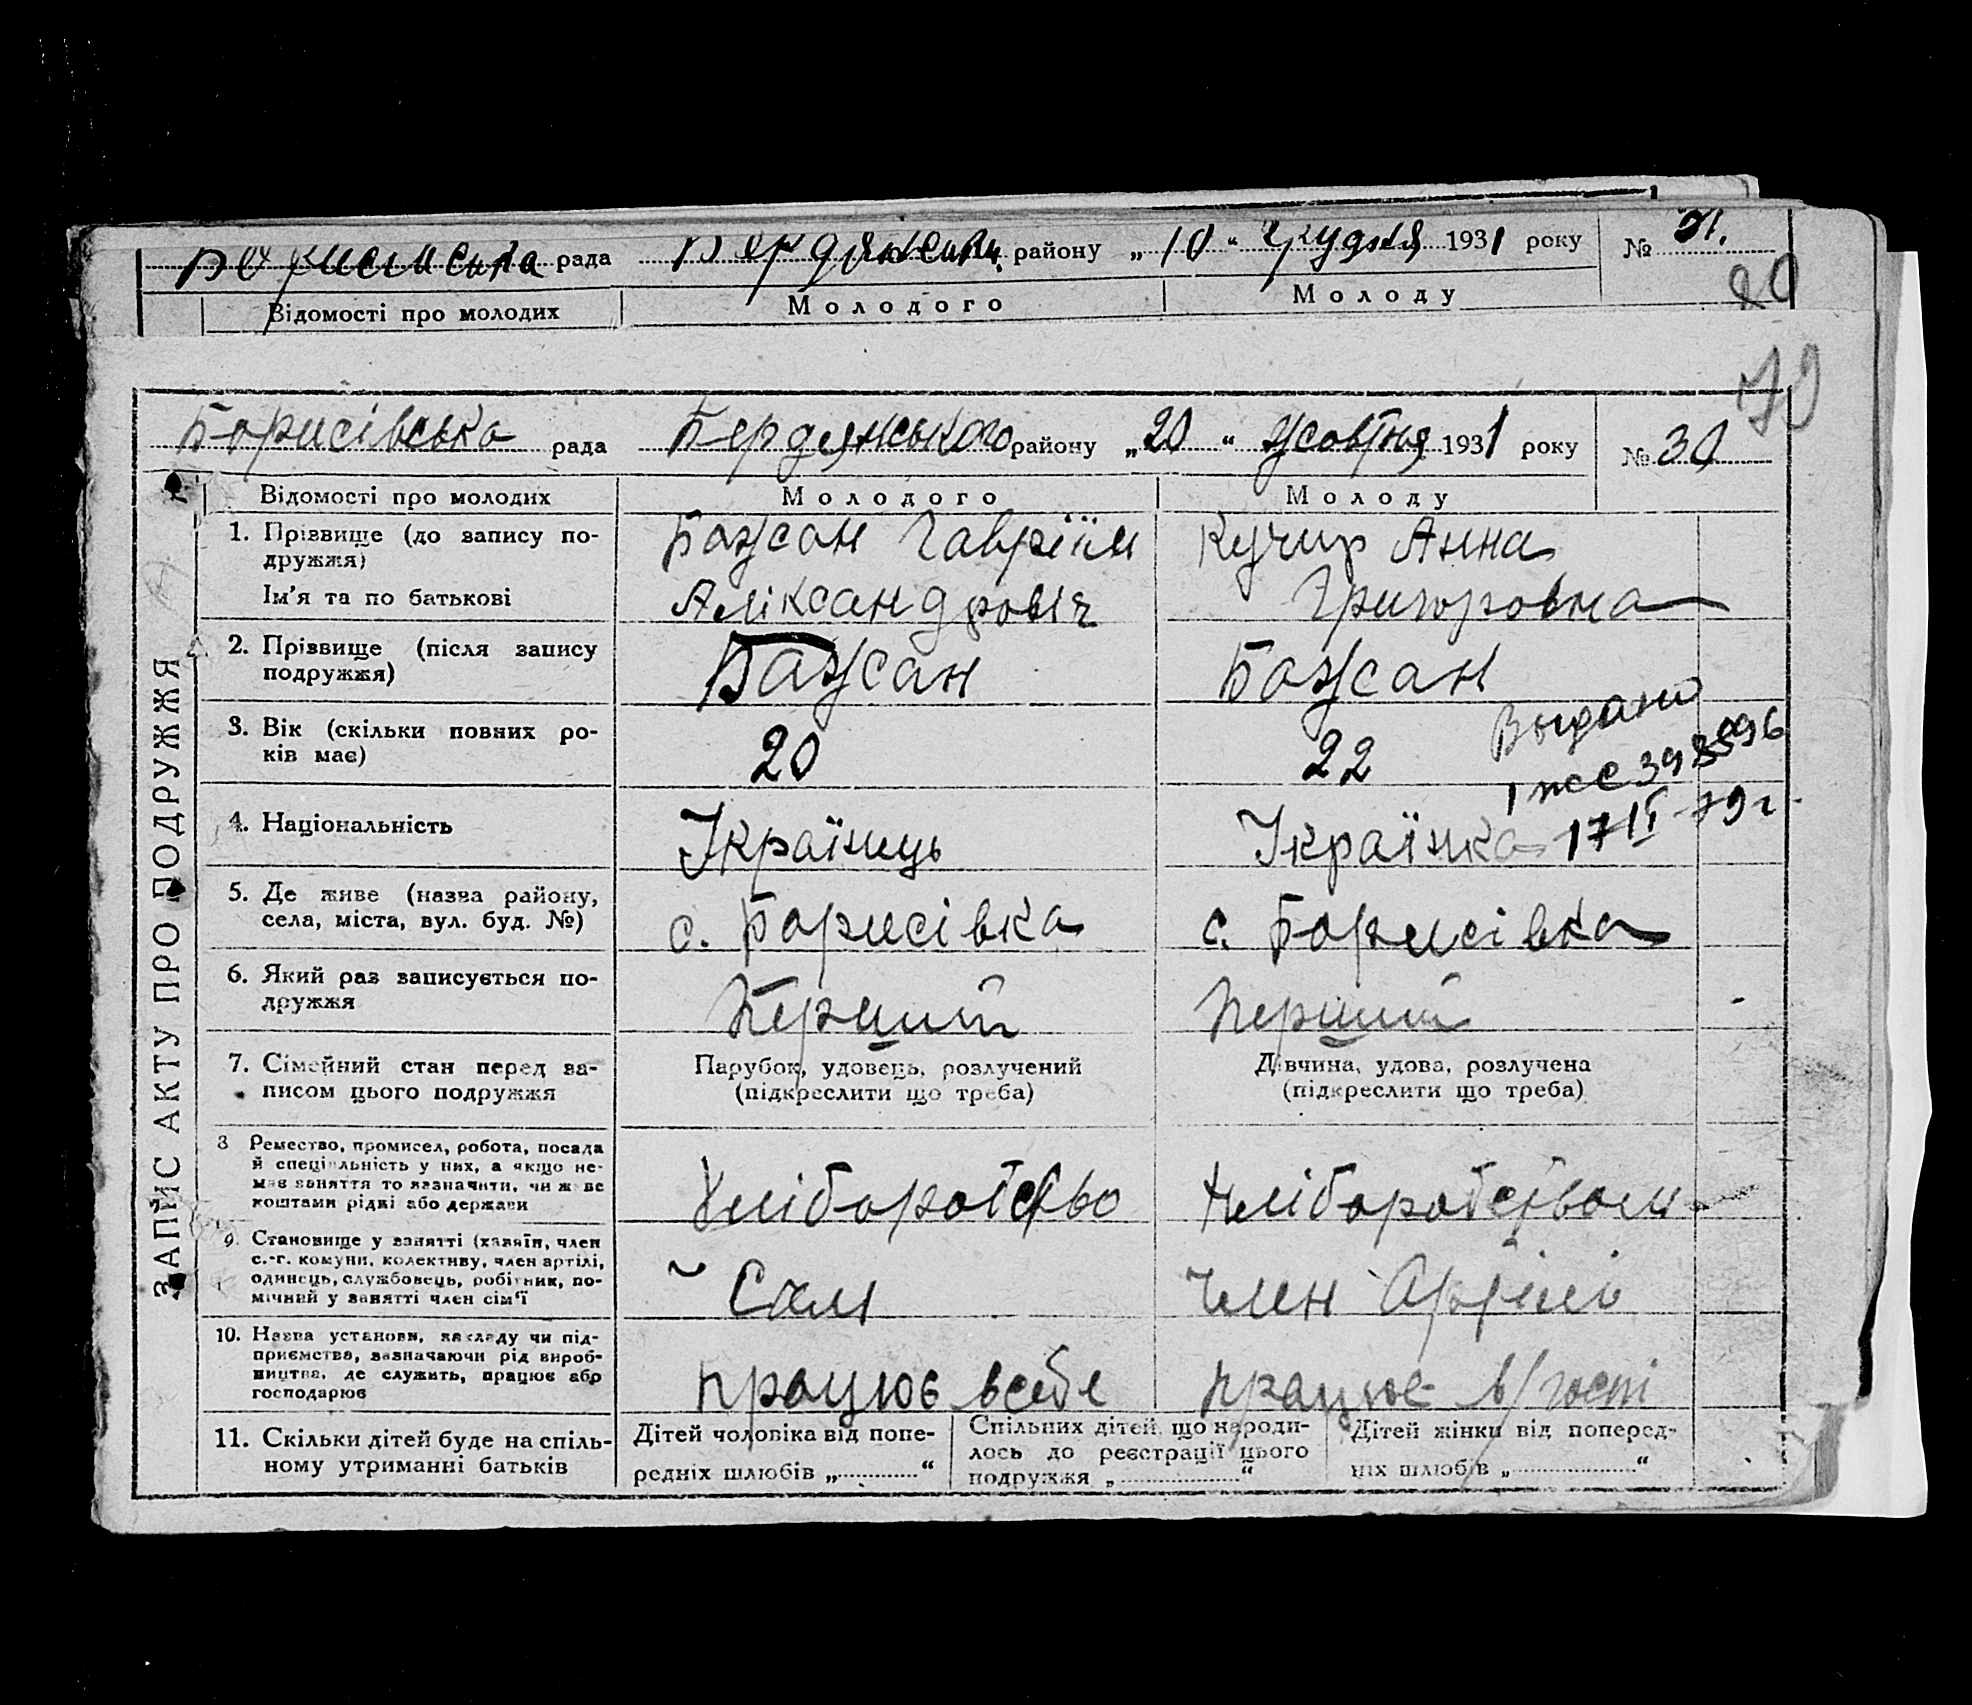 рада района „10“ грудня 1931 року №
80
Відомості про молодих Молодого Молоду
79
Борисівська рада Бердянського району „20“ жовтня 1931 року № 30
ЗАПИС АКТУ ПРО ПОДРУЖЖЯ
Відомості про молодих Молодого Молоду
1. Прізвище (до запису по- Бажсан Гавріїл Кучир Анна
дружжя)
Ім'я та по батькові Аліксандровіч Григоровна
2. Прізвище (після запису Бажсан Бажсан
подружжя)
Выдано
3. Вік (скільки повних ро- 20 22
ків має)
4. Національність Українець Українка
5. Де живе (назва району, с. Борисівка с. Борисівка
села, міста, вул. буд. №)
6. Який раз записується по- Перший Перший
дружжя
7. Сімейний стан перед за- Парубок, удовець, розлучений Дівчина, удова, розлучена
писом цього подружжя (підкреслити що треба) (підкреслити що треба)
8 Ремество, промисел, робота, посада
й спеціяльність у них, а якщо не-
має заняття то зазначити, чи живе
коштами рідні або держави Хліборобство Хліборобством
9. Становище у занятті (хазяїн, член
с.-г. комуни, колективу, член артілі,
одинець, службовець, робітник, по- Сам Член Артілі
мічний у занятті член сім'ї
10. Назва установи, закладу чи під-
приємства, зазначаючи рід вироб-
ництва, де служить, працює або працює всебе працює
господарює
11. Скільки дітей буде на спіль- Дітей чоловіка від попе- Спільних дітей, що народи- Дітей жінки від поперед-
ному утриманні батьків редніх шлюбів „............“ лось до реєстрації цього ніх шлюбів „............“
подружжя „............“